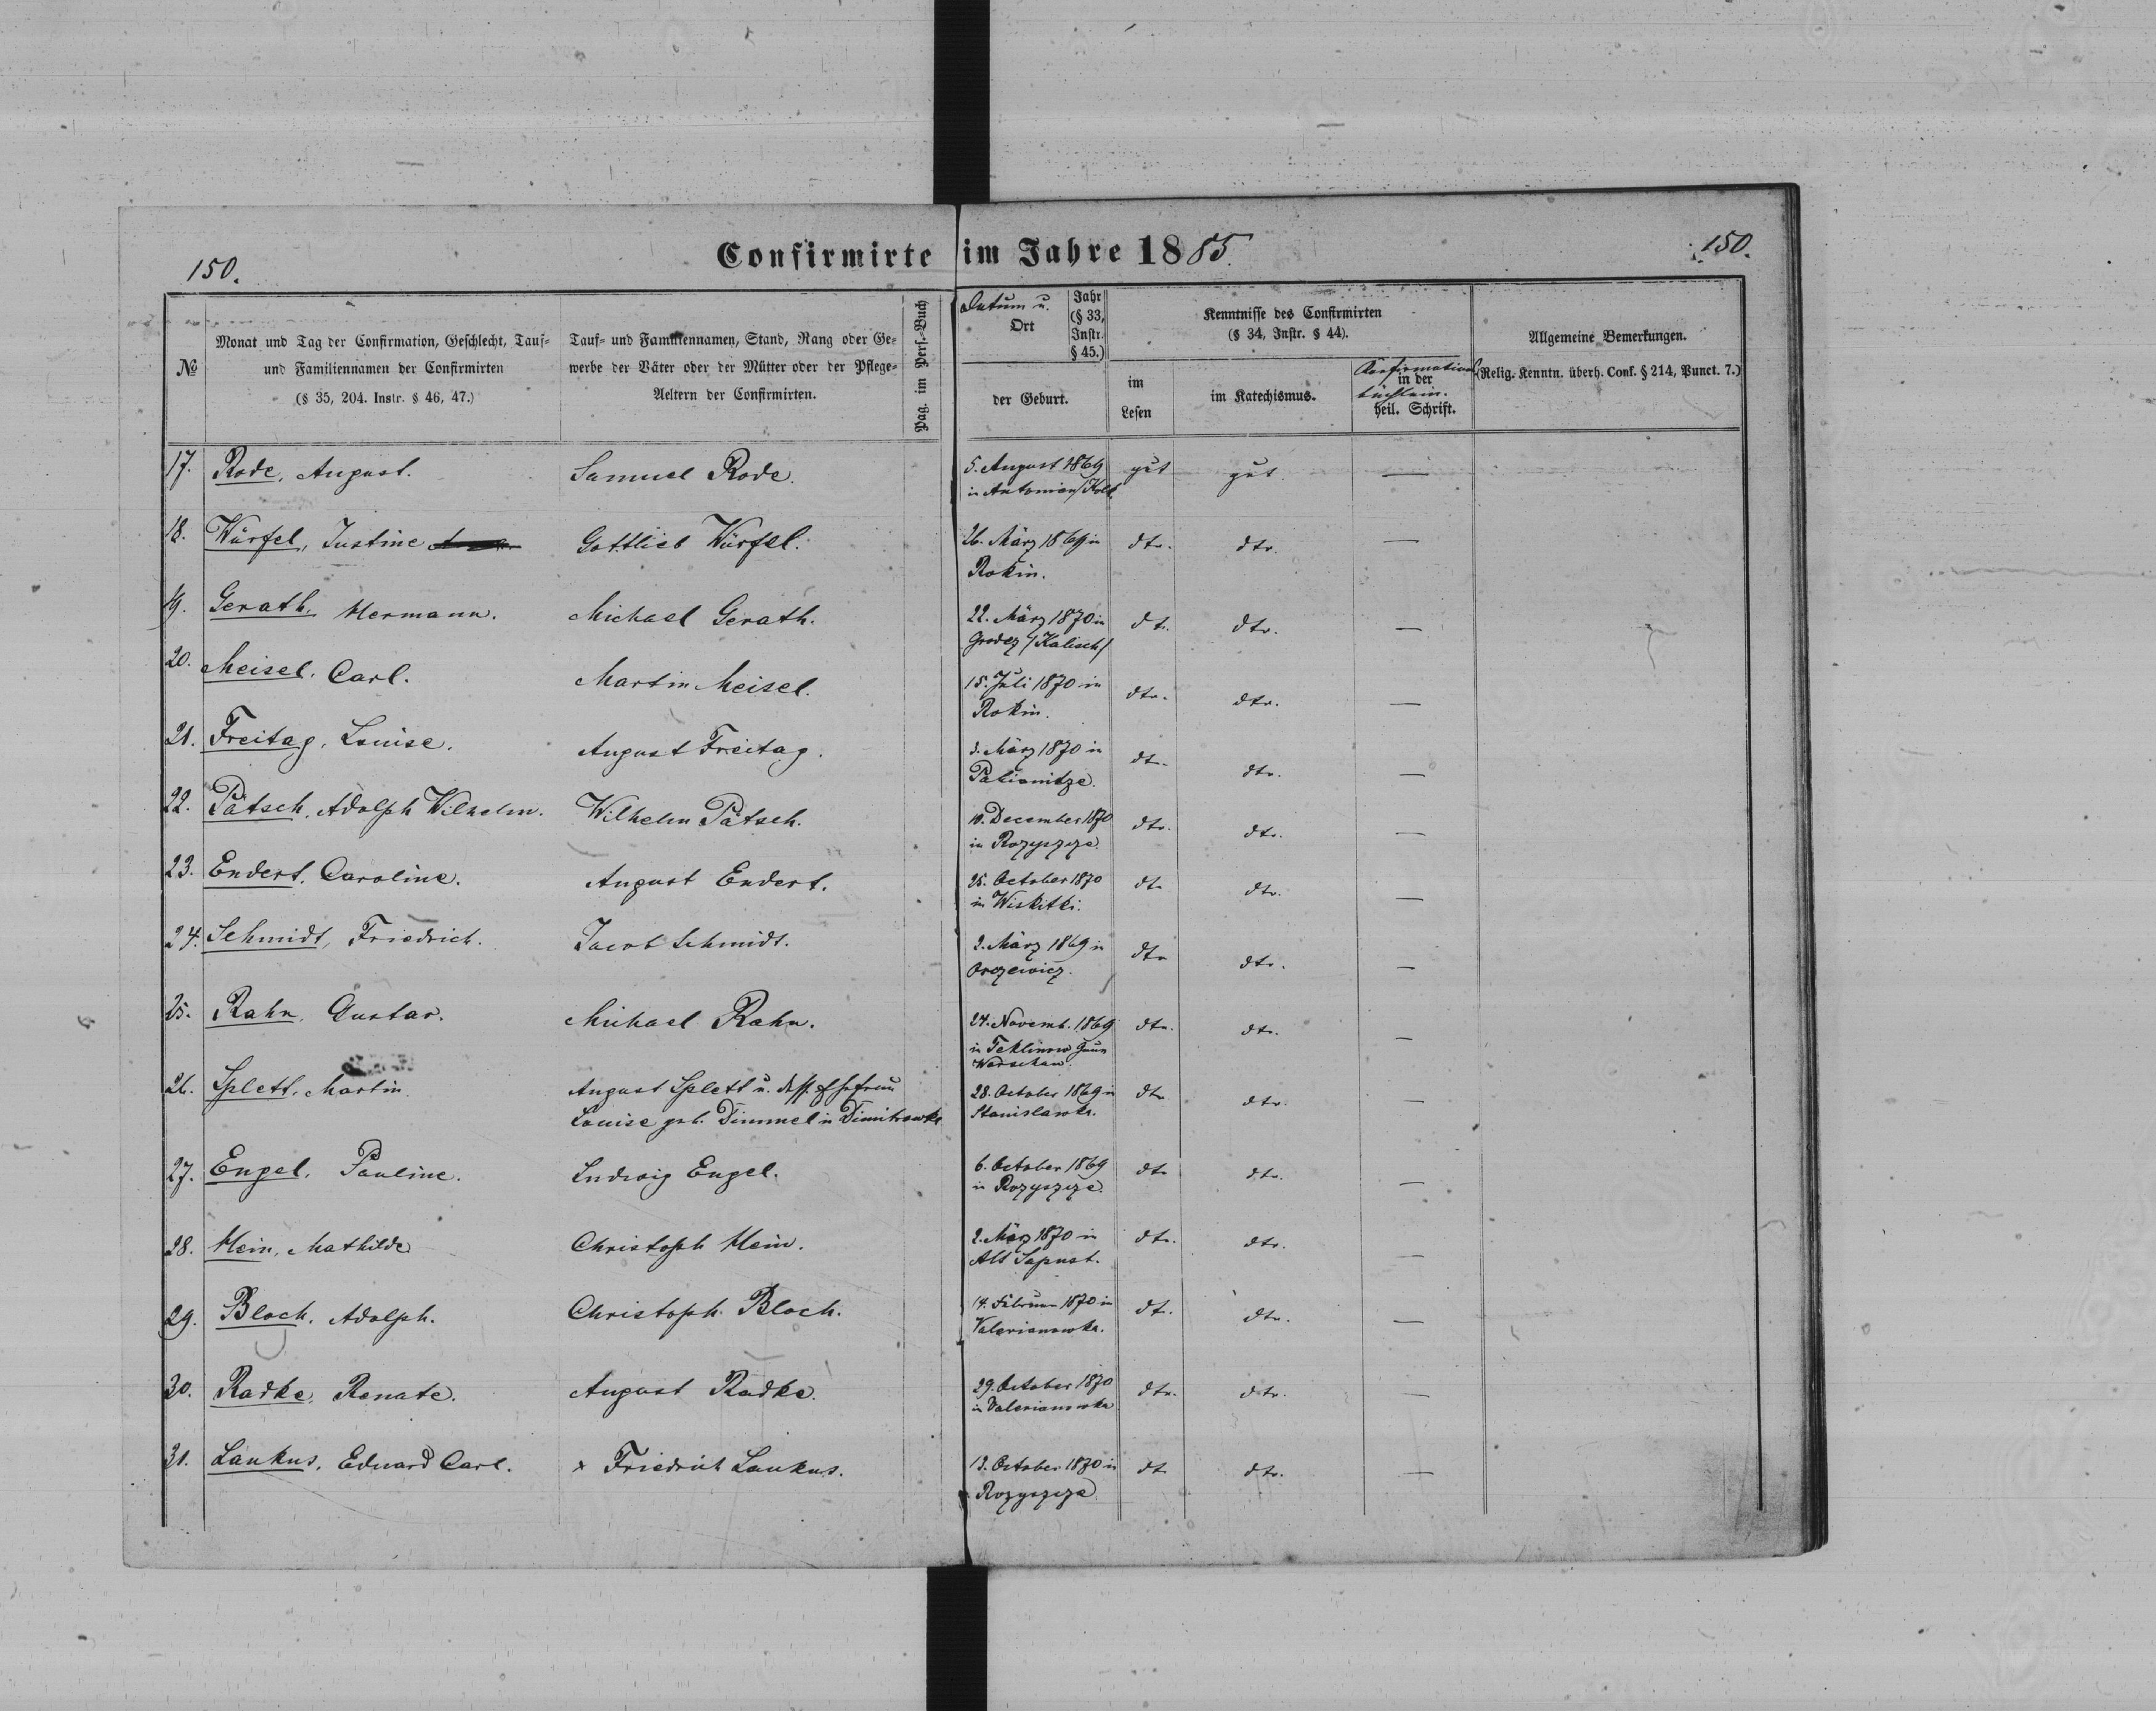 150.
Confirmirte im Jahre 1885.
150.
№
Monat und Tag der Confirmation, Geschlecht, Tauf-
und Familiennamen der Confirmirten
(§ 35, 204. Instr. § 46, 47.)
Tauf- und Familiennamen, Stand, Rang oder Ge-
werbe der Väter oder der Mütter oder der Pflege-
Aeltern der Confirmirten.
Pag. im Pers.-Buch
Datum u.
Ort
Jahr
(§ 33,
Instr.
§ 45.)
der Geburt.
Kenntnisse des Confirmirten
(§ 34, Instr. § 44).
im
Lesen
im Katechismus.
in der
heil. Schrift.
Allgemeine Bemerkungen.
(Relig. Kenntn. überh. Conf. § 214, Punct. 7.)
17. Rode, August. Samuel Rode. 5. August 1869 gut gut —
in Antonien
18. Würfel, Justine Gottlieb Würfel. 26. März 1869 in dto. dto. —
Rokin.
19. Gerath, Hermann. Michael Gerath. 22. März 1870 in dto. dto. —
Grodez /Kalisch/
20. Meisel, Carl. Martin Meisel. 15. Juli 1870 in dto. dto. —
Rokin.
21. Freitag, Louise. August Freitag. 3. März 1870 in dto. dto. —
Pabianitze.
22. Pätsch, Adolph Wilhelm. Wilhelm Pätsch. 10. December 1870 dto. dto. —
in Rozyszcze.
23. Endert, Caroline. August Endert. 25. October 1870 dto dto. —
in Wiskitki.
24. Schmidt, Friedrich. Jacob Schmidt. 2. März 1869 in dto dto. —
25. Rahn, Gustav. Michael Rahn. 24. Novemb. 1869 dto. dto. —
in Teklinow Gouv
Warschau
26. Splett, Martin. August Splett u. dess. Ehefrau 28. October 1869 in dto dto. —
Louise geb. Dimmel in Dimitrowka Stanislawka.
27. Engel, Pauline. Ludwig Engel. 6. October 1869 dto dto. —
in Rozyszcze.
28. Hein, Mathilde Christoph Hein. 2. März 1870 in dto. dto. —
Alt Sapust.
29. Bloch, Adolph. Christoph Bloch. 14. Februar 1870 in dto. dto. —
Valerianowka.
30. Radke, Renate. August Radke. 29. October 1870 dto. dto. —
in Valerianowka
31. Laukus, Eduard Carl. x Friedrich Laukus. 13. October 1870 in dto dto. —
Rozyszcze